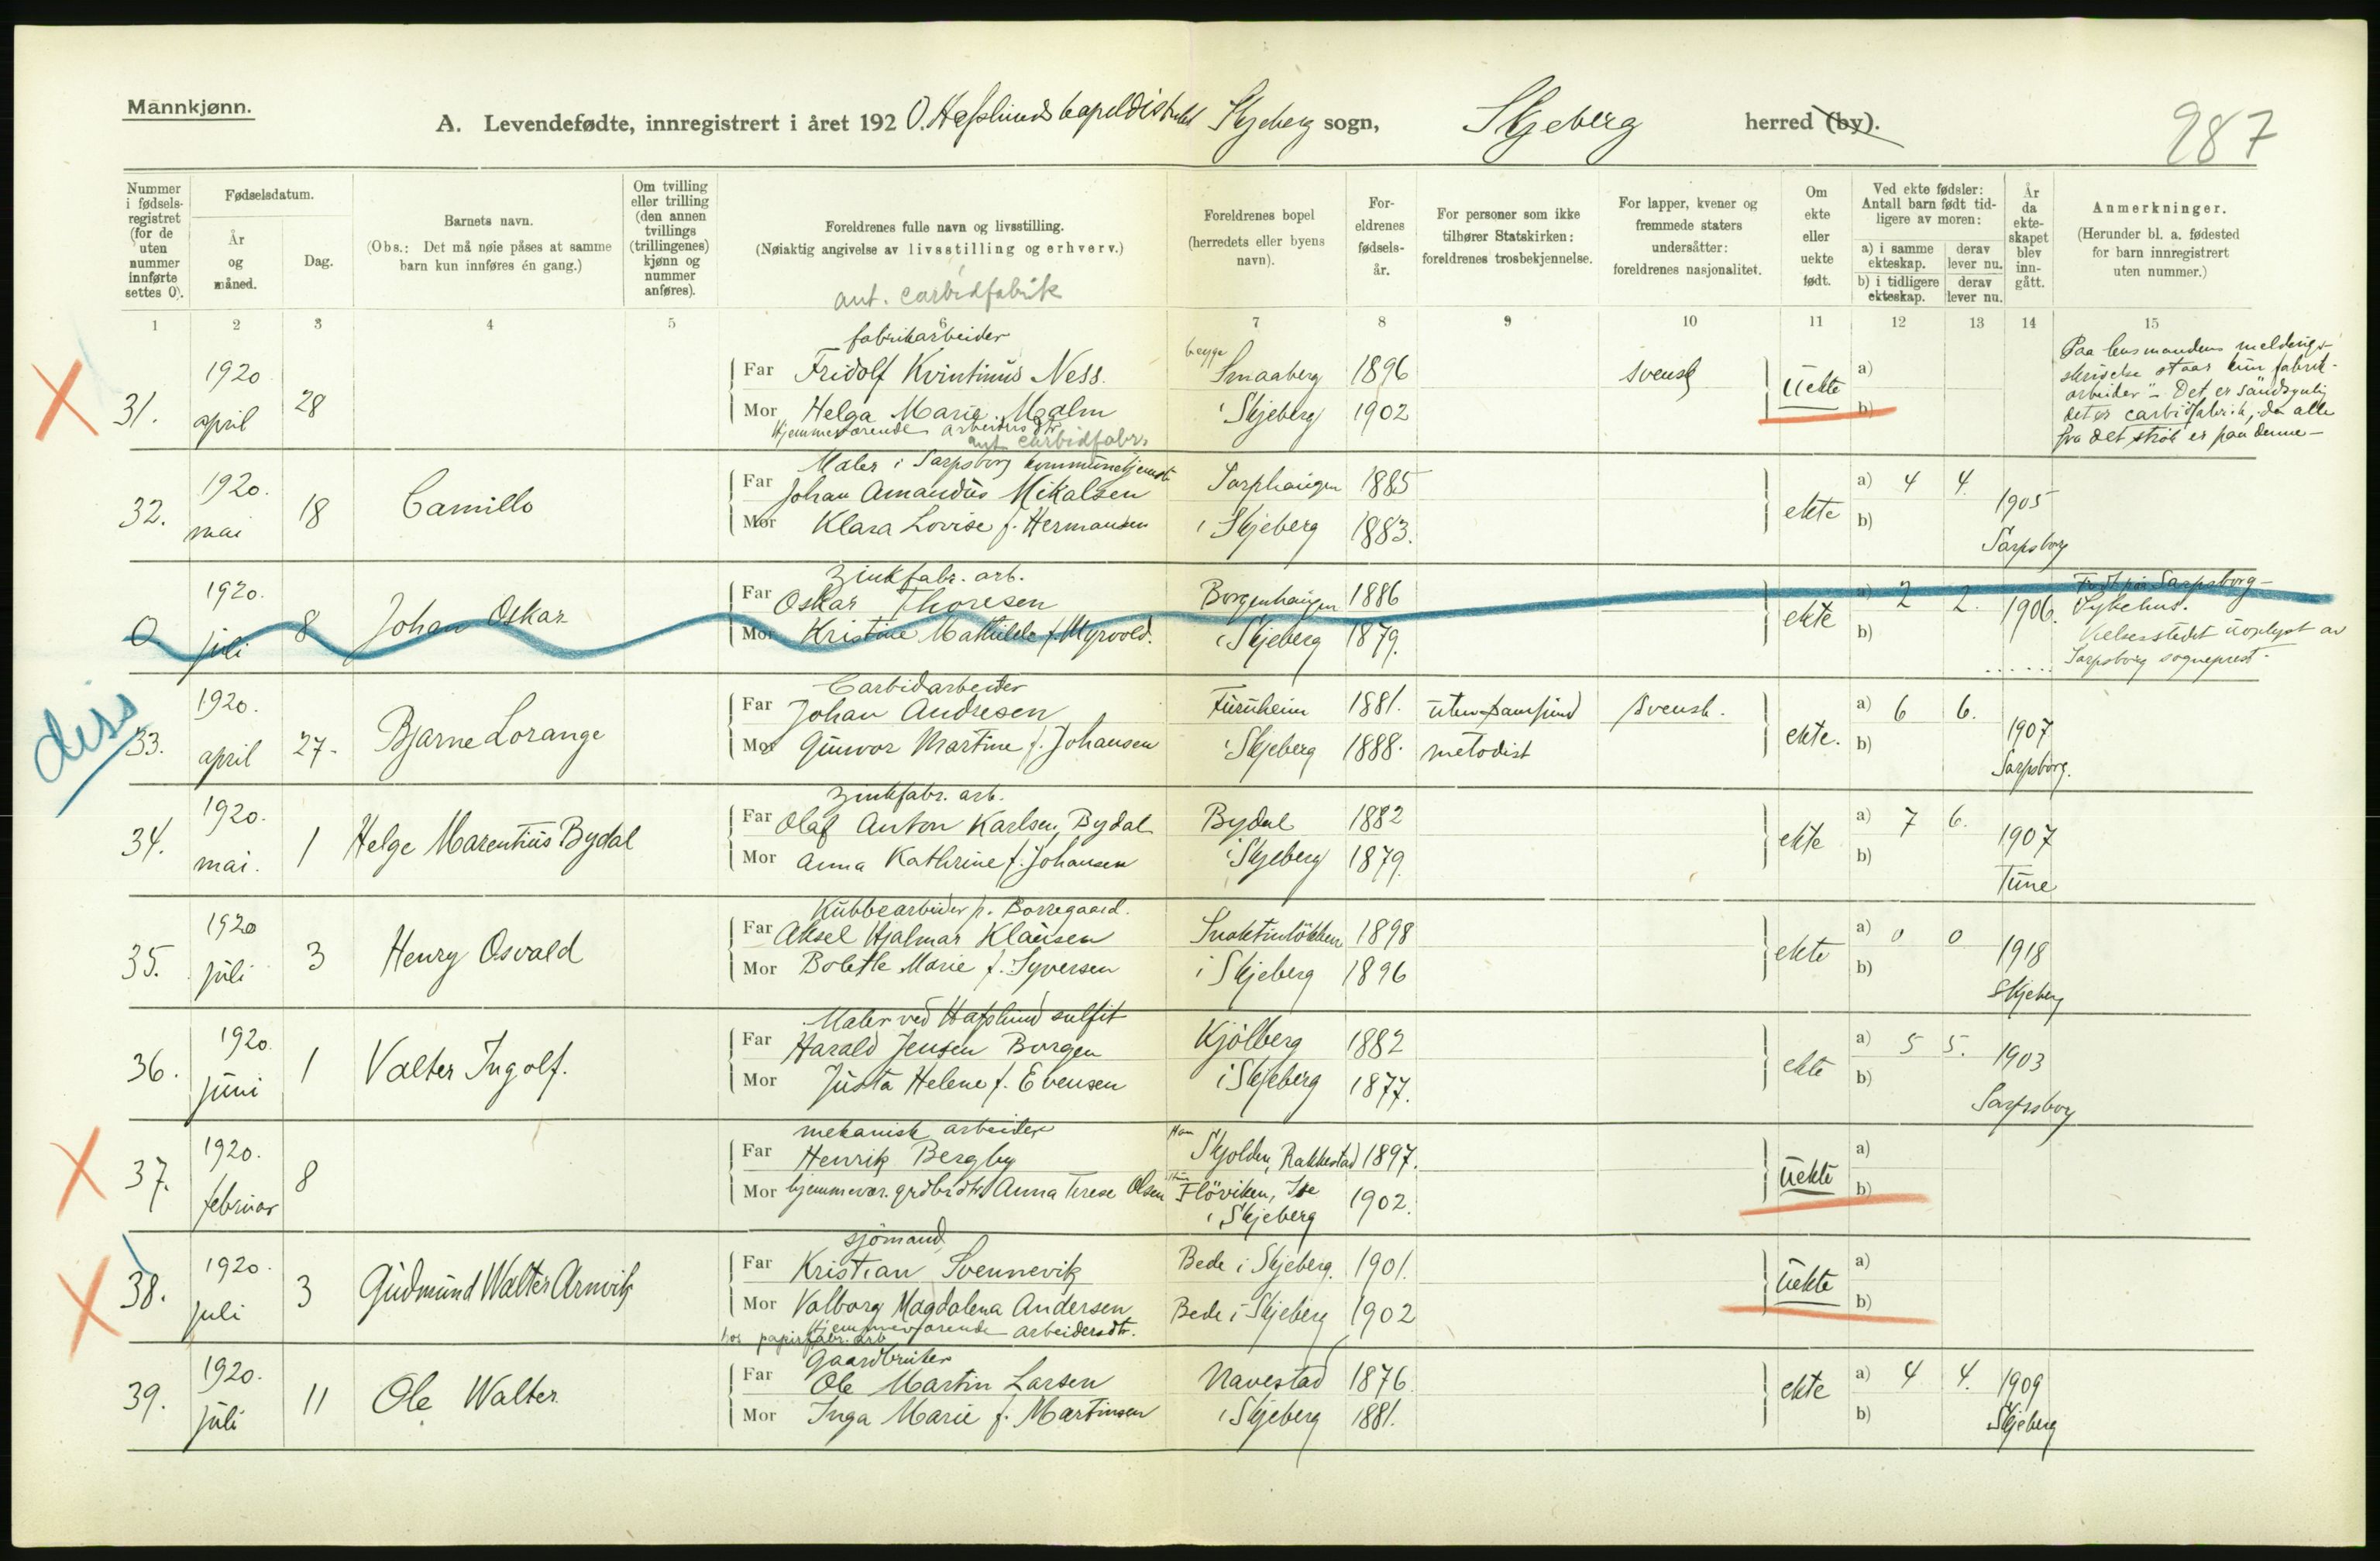 Mannkjønn.
A. Levendefødte, innregistrert i året 1920. Hafslunds kapeldistrikt Skjeberg sogn, Skjeberg herred (by).
287
Nummer i fødselsregistret (for de uten nummer innførte settes 0).
Fødselsdatum.
År og måned.
Dag.
Barnets navn.
(Obs.: Det må nøie påses at samme barn kun innføres én gang.)
Om tvilling eller trilling (den annen tvillings (trillingenes) kjønn og nummer anføres).
Foreldrenes fulle navn og livsstilling.
(Nøiaktig angivelse av livsstilling og erhverv.)
ant. carbidfabrik
Foreldrenes bopel (herredets eller byens navn).
Foreldrenes fødselsår.
For personer som ikke tilhører Statskirken: foreldrenes trosbekjennelse.
For lapper, kvener og fremmede staters undersåtter: foreldrenes nasjonalitet.
Om ekte eller uekte født.
Ved ekte fødsler: Antall barn født tidligere av moren:
a) i samme ekteskap. derav lever nu.
b) i tidligere ekteskap. derav lever nu.
År da ekteskapet blev inngått.
Anmerkninger.
(Herunder bl. a. fødested for barn innregistrert uten nummer.)
1 2 3 4 5 6 7 8 9 10 11 12 13 14 15
fabrikarbeider
31. 1920 april 28
Far Fridolf Kvintinus Ness. begge Smaaberg 1896 svensk uekte a)
Mor Helga Marie Malm i Skjeberg 1902 b)
Hjemmeværende arbeiders dtr.
ant carbidfabr.
Paa lensmandens meldings-
skrivelse staar kun fabrik-
arbeider". Det er sandsynlig
det er carbidfabrik, da alle
fra det strök er paa denne-
32. 1920. mai 18 Camillo
Maler i Sarpsborg kommunetjeneste
Far Johan Amandus Mikalsen Sarphaugen 1885 ekte a) 4 4. 1905
Mor Klara Lovise f. Hermansen i Skjeberg 1883. b) Sarpsborg
0. 1920. juli 8 Johan Oskar
Zinkfabr. arb.
Far Oskar Thoresen Borgenhaugen 1886 ekte a) 2 2. 1906.
Mor Kristine Mathilde f. Myrvold. i Skjeberg 1879. b)
Født paa Sarpsborg
Sykehus.
Vielsesstedet uoplyst av
Sarpsborg sogneprest.
diss
33. 1920. april 27. Bjarne Lorange
Carbidarbeider
Far Johan Andresen Furuheim 1881. uten samfund svensk. ekte. a) 6 6. 1907
Mor Gunvor Martine f. Johansen i Skjeberg 1888. metodist b) Sarpsborg.
34. 1920. mai. 1 Helge Marentius Bydal
Zinkfabr. arb.
Far Olaf Anton Karlsen Bydal Bydal 1882 ekte a) 7 6. 1907
Mor Anna Kathrine f. Johansen i Skjeberg 1879. b) Tune
35. 1920 juli 3 Henry Osvald
Kubbearbeider p. Borregaard.
Far Aksel Hjalmar Klausen 1898 ekte a) 0 0 1918
Mor Bolette Marie f. Syversen i Skjeberg 1896 b) Skjeberg
36. 1920. juni 1 Valter Ingolf.
Maler ved Hafslund sulfit
Far Harald Jensen Borgen Kjölberg 1882 ekte a) 5 5. 1903
Mor Justa Helene f. Evensen i Skjeberg 1877. b) Sarpsborg
37. 1920. februar 8
mekanisk arbeider
Far Henrik Bergby Han Skjolden, Rakkestad 1897. uekte a)
Mor hjemmevær. grdbr.dtr. Anna Terese Olsen Flöviken, Ise i Skjeberg 1902. b)
38. 1920. juli 3 Gudmund Walter Arnvik
sjömand
Far Kristian Svennevik Bede i Skjeberg. 1901. uekte a)
Mor Valborg Magdalena Andersen Bede i Skjeberg 1902 b)
Hjemmeværende arbeidersdtr.
hos papirfabr. arb
39. 1920. juli 11 Ole Walter
Gaardbruker
Far Ole Martin Larsen Navestad 1876. ekte a) 4 4. 1909
Mor Inga Marie f. Martinsen i Skjeberg 1881. b) Skjeberg